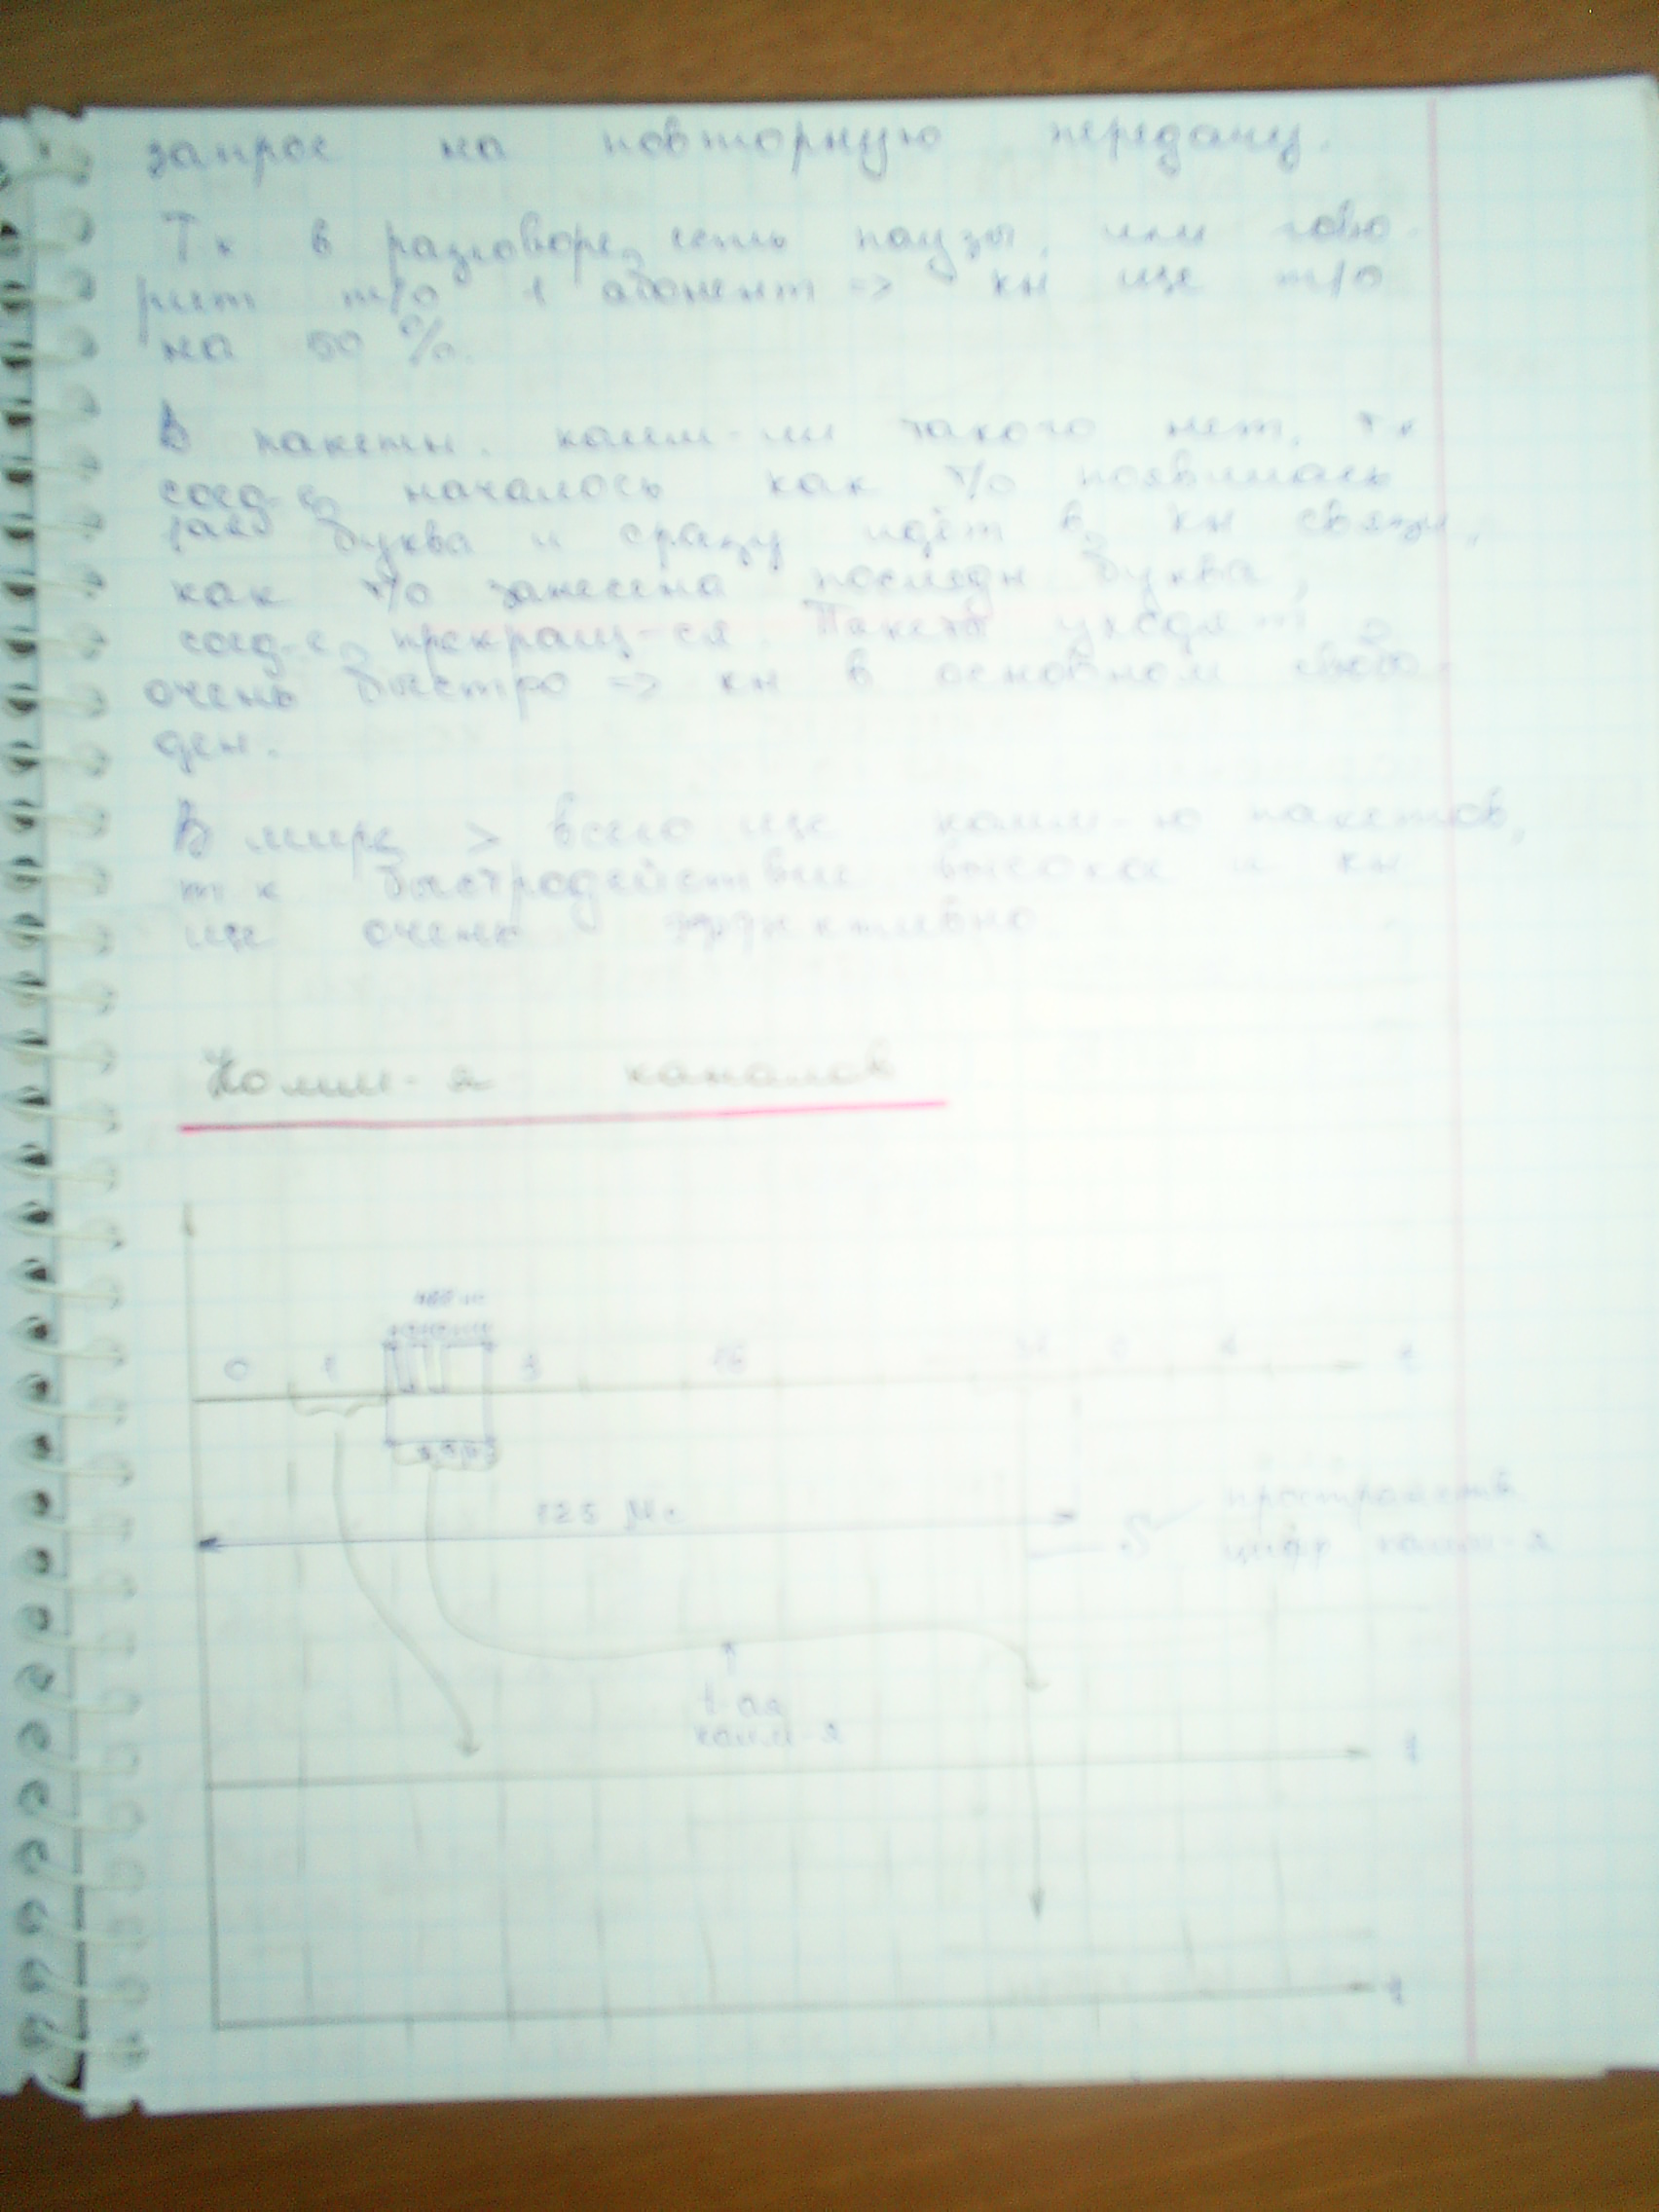 запрос на повторную передачу.
Тк в разговоре есть паузы, или гово-
рит т/о 1 абонент => кн ще т/о
на 50 %.
В пакетн. комм-ии такого нет, тк
соед-е началось как т/о появилась
1ая буква и сразу идёт в кн связи,
как т/о занесена последн буква,
соед-е прекращ-ся. Пакеты уходят
очень быстро => кн в основном свобо-
ден.
В мире > всего ще комм-ю пакетов,
т к быстродействие высокое и кн
ще очень эффективно
Комм-я каналов
0 1 3 16 31 0 1 t
125 Мс
S пространств
цифр комм-я
t-ая
комм-я
t
t